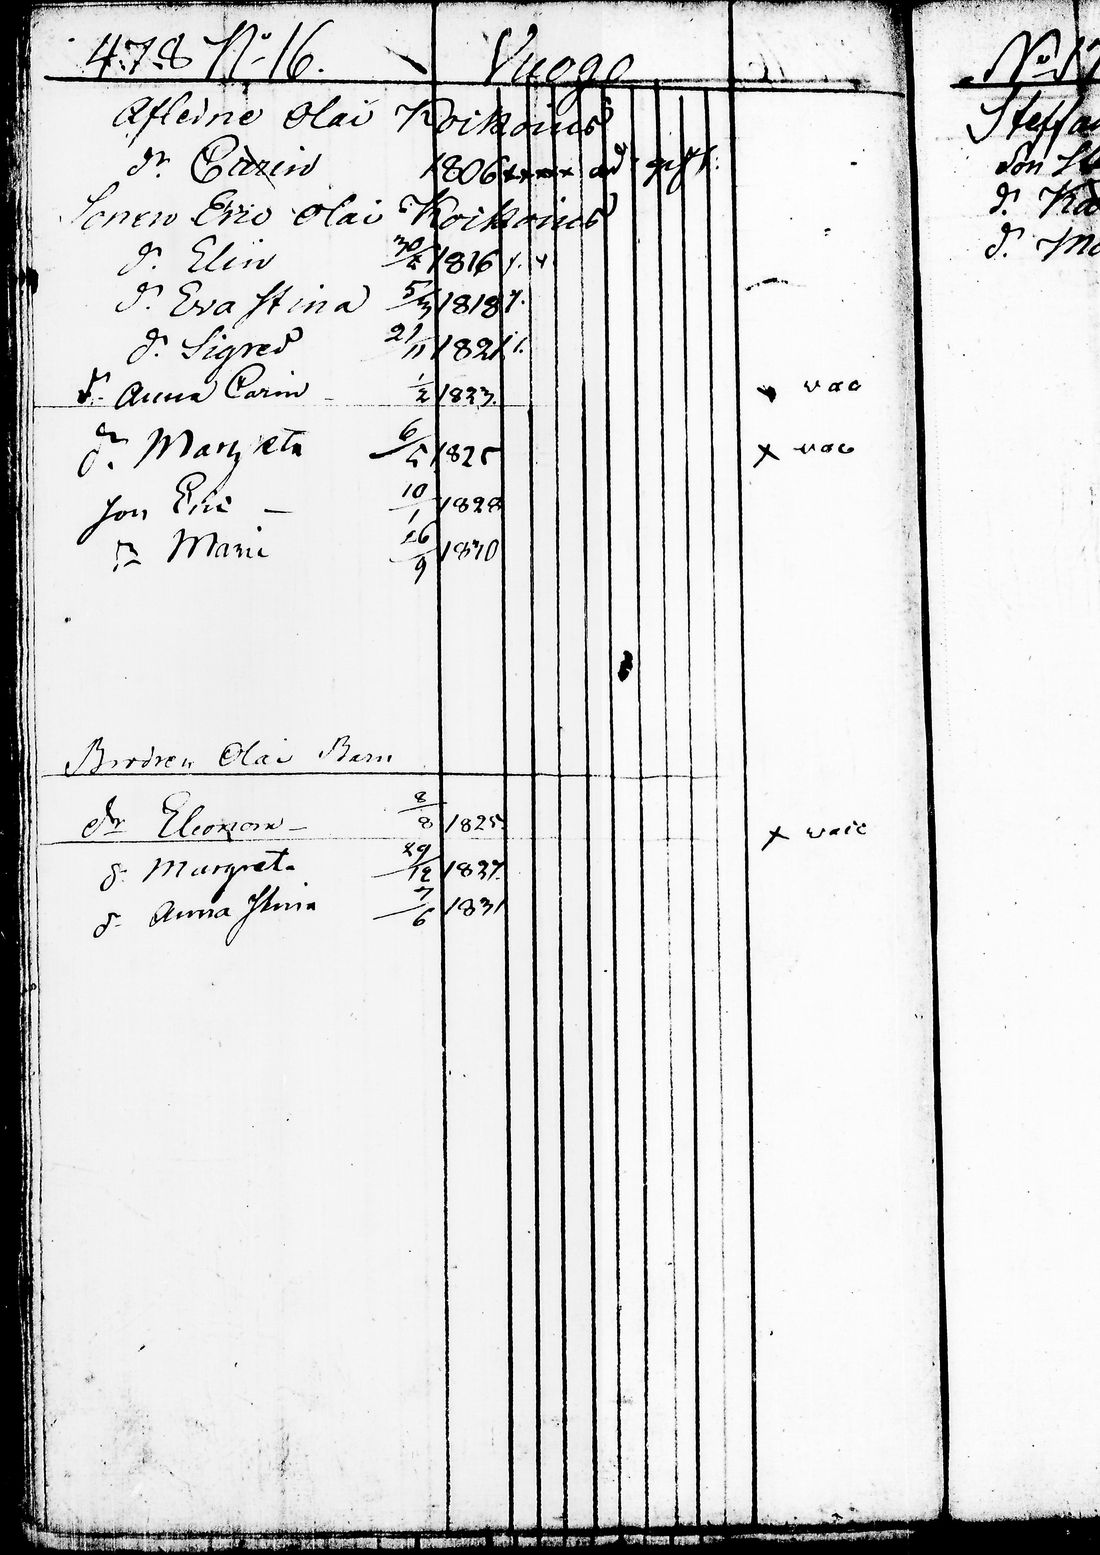 478 No 16. Vuogo
Afledne Olai Koikoius
dr. Carin 1806 gift.
Sonen Eric Olai Koikoius
dr. Elin 30/4 1816
dr. Eva Stina 5/3 1818
dr. Sigred 21/11 1821
dr. Anna Carin 1/2 1823. vac
dr. Margreta 6/5 1825 x vac
Son Eric — 10/1 1828
Maria 26/9 1830
Brodren Olai Barn
dr Eleonora — 8/8 1825 x vacc
d. Margreta 29/12 1827.
d. Anna Stina 7/6 1831
No 17
Steffa
Son
d.
d.